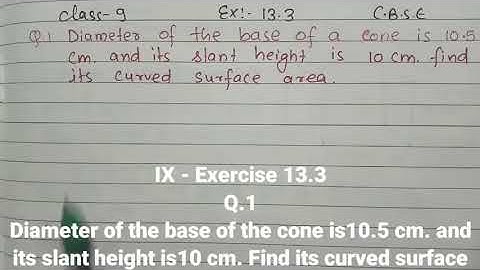 Class-9 Ex:- 13.3 C.B.S.E
Q.1 Diameter of the base of a cone is 10.5
cm. and its slant height is 10 cm. find
its curved surface area.
IX - Exercise 13.3
Q.1
Diameter of the base of the cone is10.5 cm. and
its slant height is10 cm. Find its curved surface